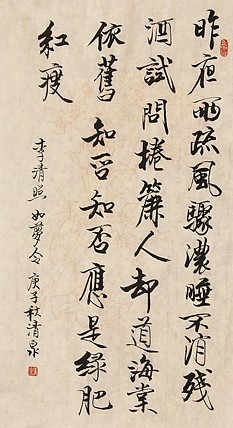 昨夜雨疏風驟濃睡不消殘
酒試問捲簾人却道海棠
依舊知否知否應是綠肥
紅瘦
李清照 如夢令 庚子秋清泉